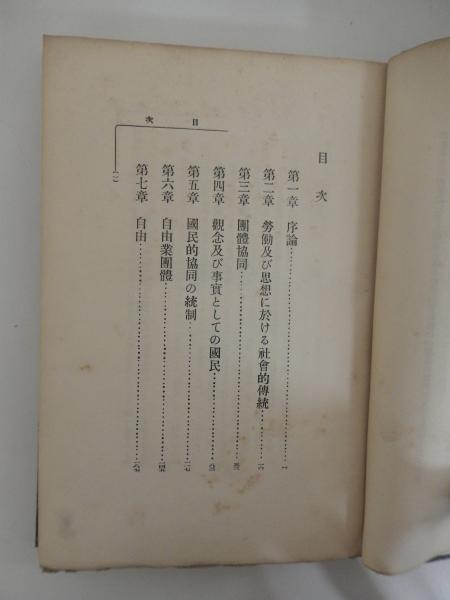 目次
目次
第一章 序論…………一
第二章 勞働及び思想に於ける社會的傳統…………
第三章 團體協同…………
第四章 觀念及び事實としての國民…………
第五章 國民的協同の統制…………
第六章 自由業團體…………一四五
第七章 自由…………一六七
(一)